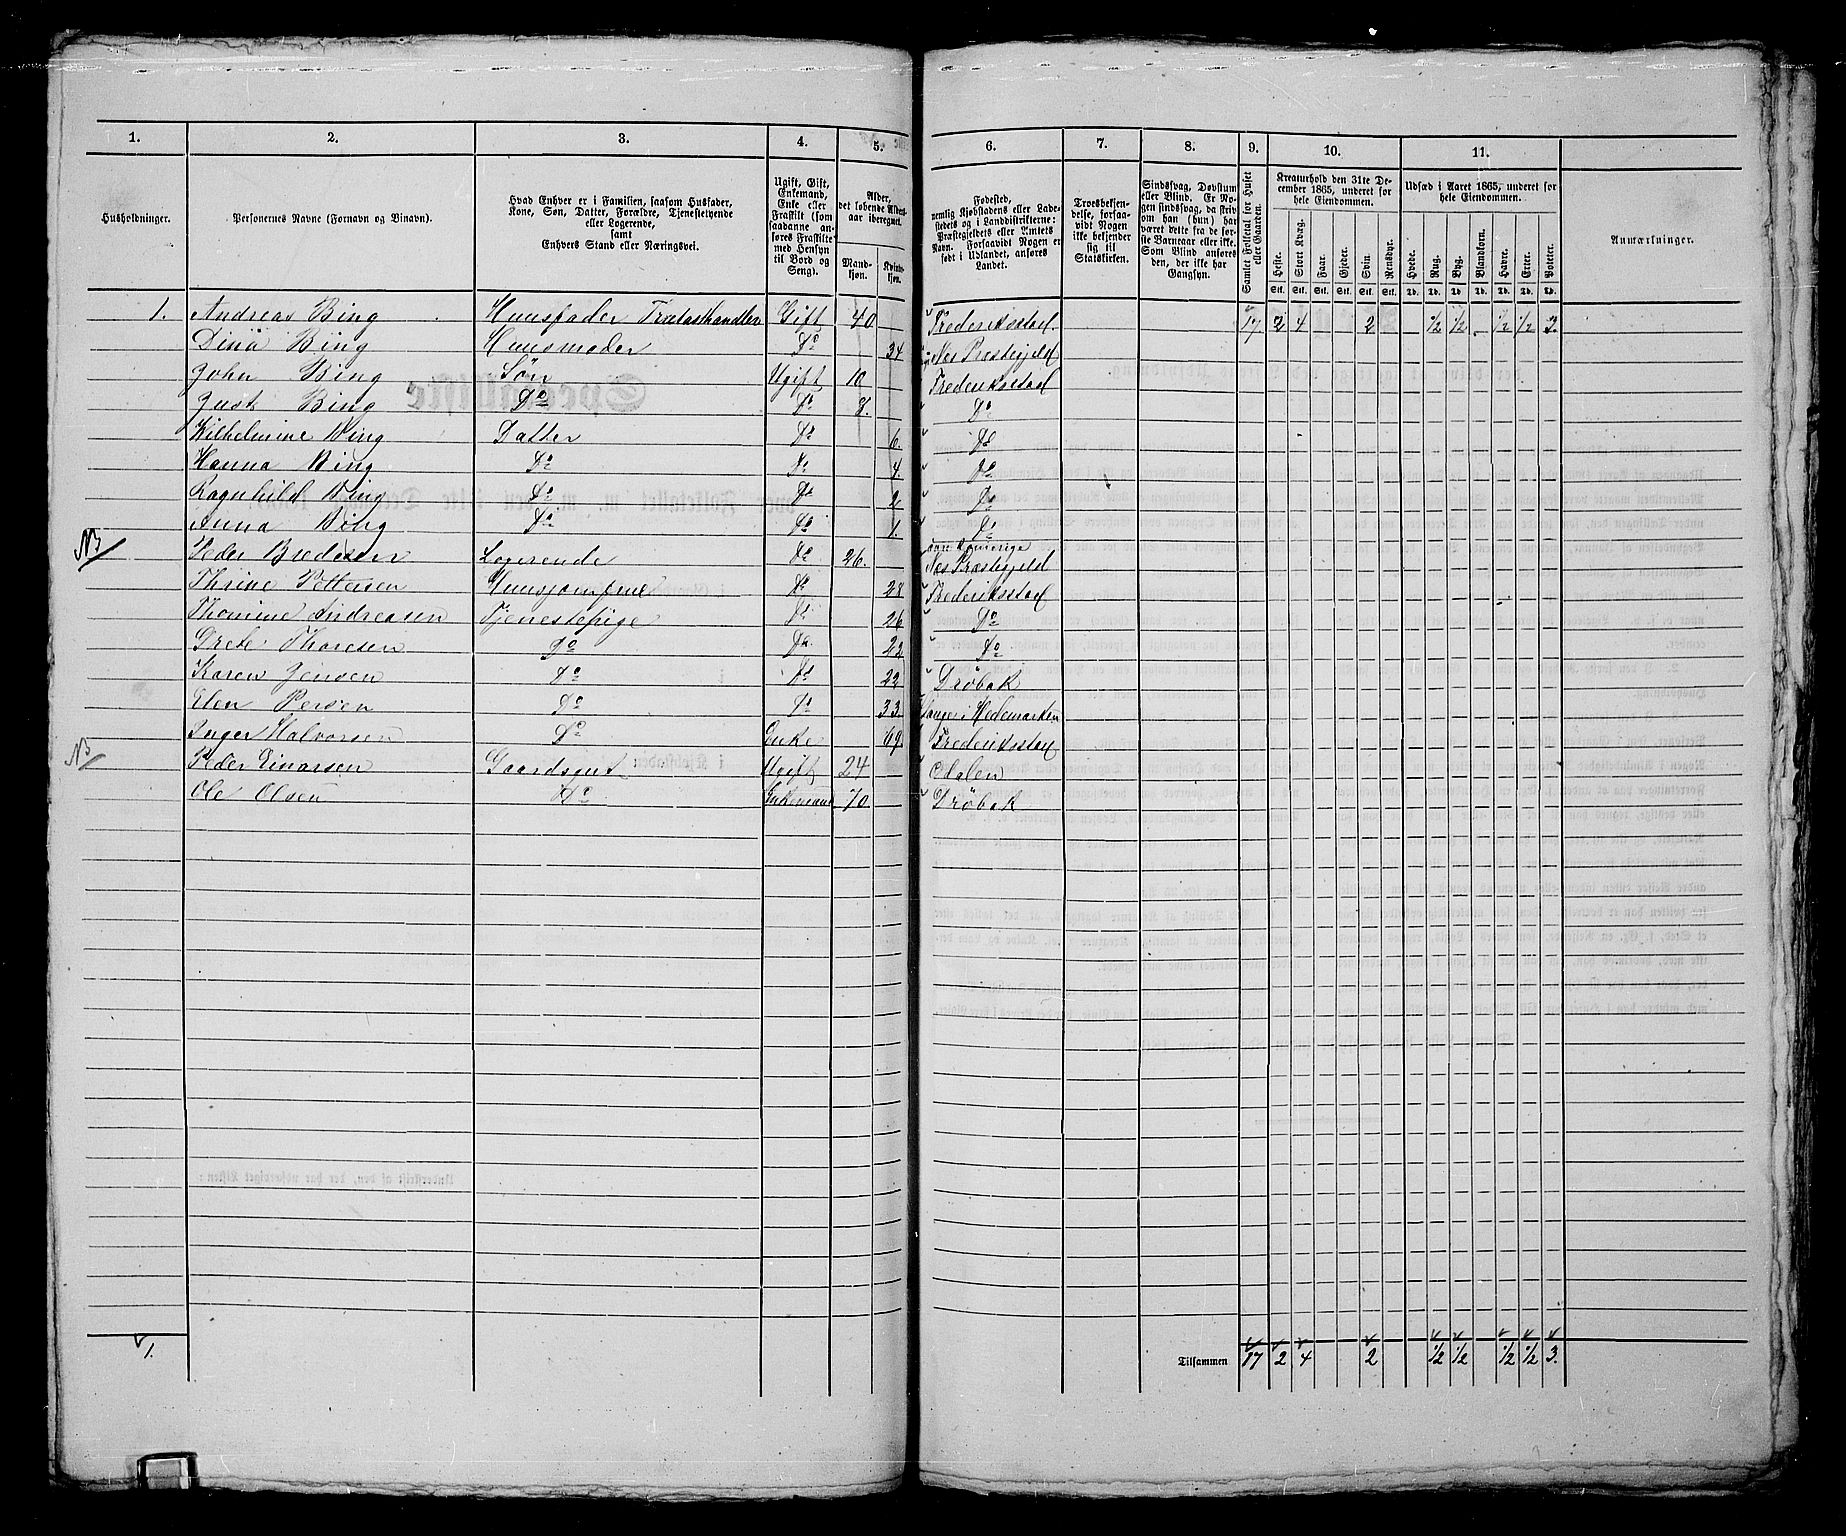 1. 2. 3. 4. 5. 6. 7. 8. 9. 10. 11.
Husholdninger.
Personernes Navne (Fornavn og Binavn).
Hvad Enhver er i Familien, saasom Husfader,
Kone, Søn, Datter, Forældre, Tjenestetyende
eller Logerende,
samt
Enhvers Stand eller Næringsvei.
Ugift, Gift,
Enkemand,
Enke eller
Fraskilt (som
saadanne an-
føres Fraskilte
med Hensyn
til Bord og
Seng).
Alder,
det løbende Alders-
aar iberegnet.
Mand-
kjøn.
Kvinde-
kjøn.
Fødested,
nemlig Kjøbstadens eller Lade-
stedets og i Landdistrikterne:
Præstegjeldets eller Amtets
Navn. Forsaavidt Nogen er
født i Udlandet, anføres
Landet.
Troesbekjen-
delse, forsaa-
vidt Nogen
ikke bekjender
sig til
Statskirken.
Sindssvag, Døvstum
eller Blind. Er No-
gen sindssvag, da skriv
om han (hun) har
været dette fra de før-
ste Barneaar eller ikke.
Som Blind anføres
den, der ikke har
Gangsyn.
Samlet Folketal for Huset
eller Gaarden.
Kreaturhold den 31te De-
cember 1865, underet for
hele Eiendommen.
Heste. Stort Kvæg. Faar. Gjeder. Svin. Rensdyr.
Stk. Stk. Stk. Stk. Stk. Stk.
Udsæd i Aaret 1865, underet for
hele Eiendommen.
Hvede. Rug. Byg. Blandkorn. Havre. Erter. Poteter.
Td. Td. Td. Td. Td. Td. Td.
Anmærkninger.
1. Andreas Bing Huusfader Trælasthandler Gift 40 Frederiksstad 17 2 4 2 1/2 1/2 1/2 1/2 3.
Dina Bing Huusmoder Do 34 Nes Præstegjeld
John Bing Søn Ugift 10 Frederiksstad
Just Bing Do Do 8. Do
Vilhelmine Bing Datter Do 6. Do
Hanna Bing Do Do 4. Do
Ragnhild Bing Do Do 2 Do
Anna Bing Do Do 1. Do
NB Peder Bredesen Logerende Do 26. Nes Præstegjeld
Thrine Pettersen Huusjomfrue Do 28 Frederiksstad
Thomine Andreasen Tjenestepige Do 26 Do
Grete Thoresen Do Do 23 Do
Karen Jensen Do Do 22 Drøbak
Elen Persen Do Do 33 Hedemarken
Inger Halvorsen Do Enke 69. Frederiksstad
NB Peder Einarsen Gaardsgut Ugift 24
Ole Olsen Do Enkemand 70 Drøbak
1. Tilsammen 17 2 4 2 1/2 1/2 1/2 1/2 3.